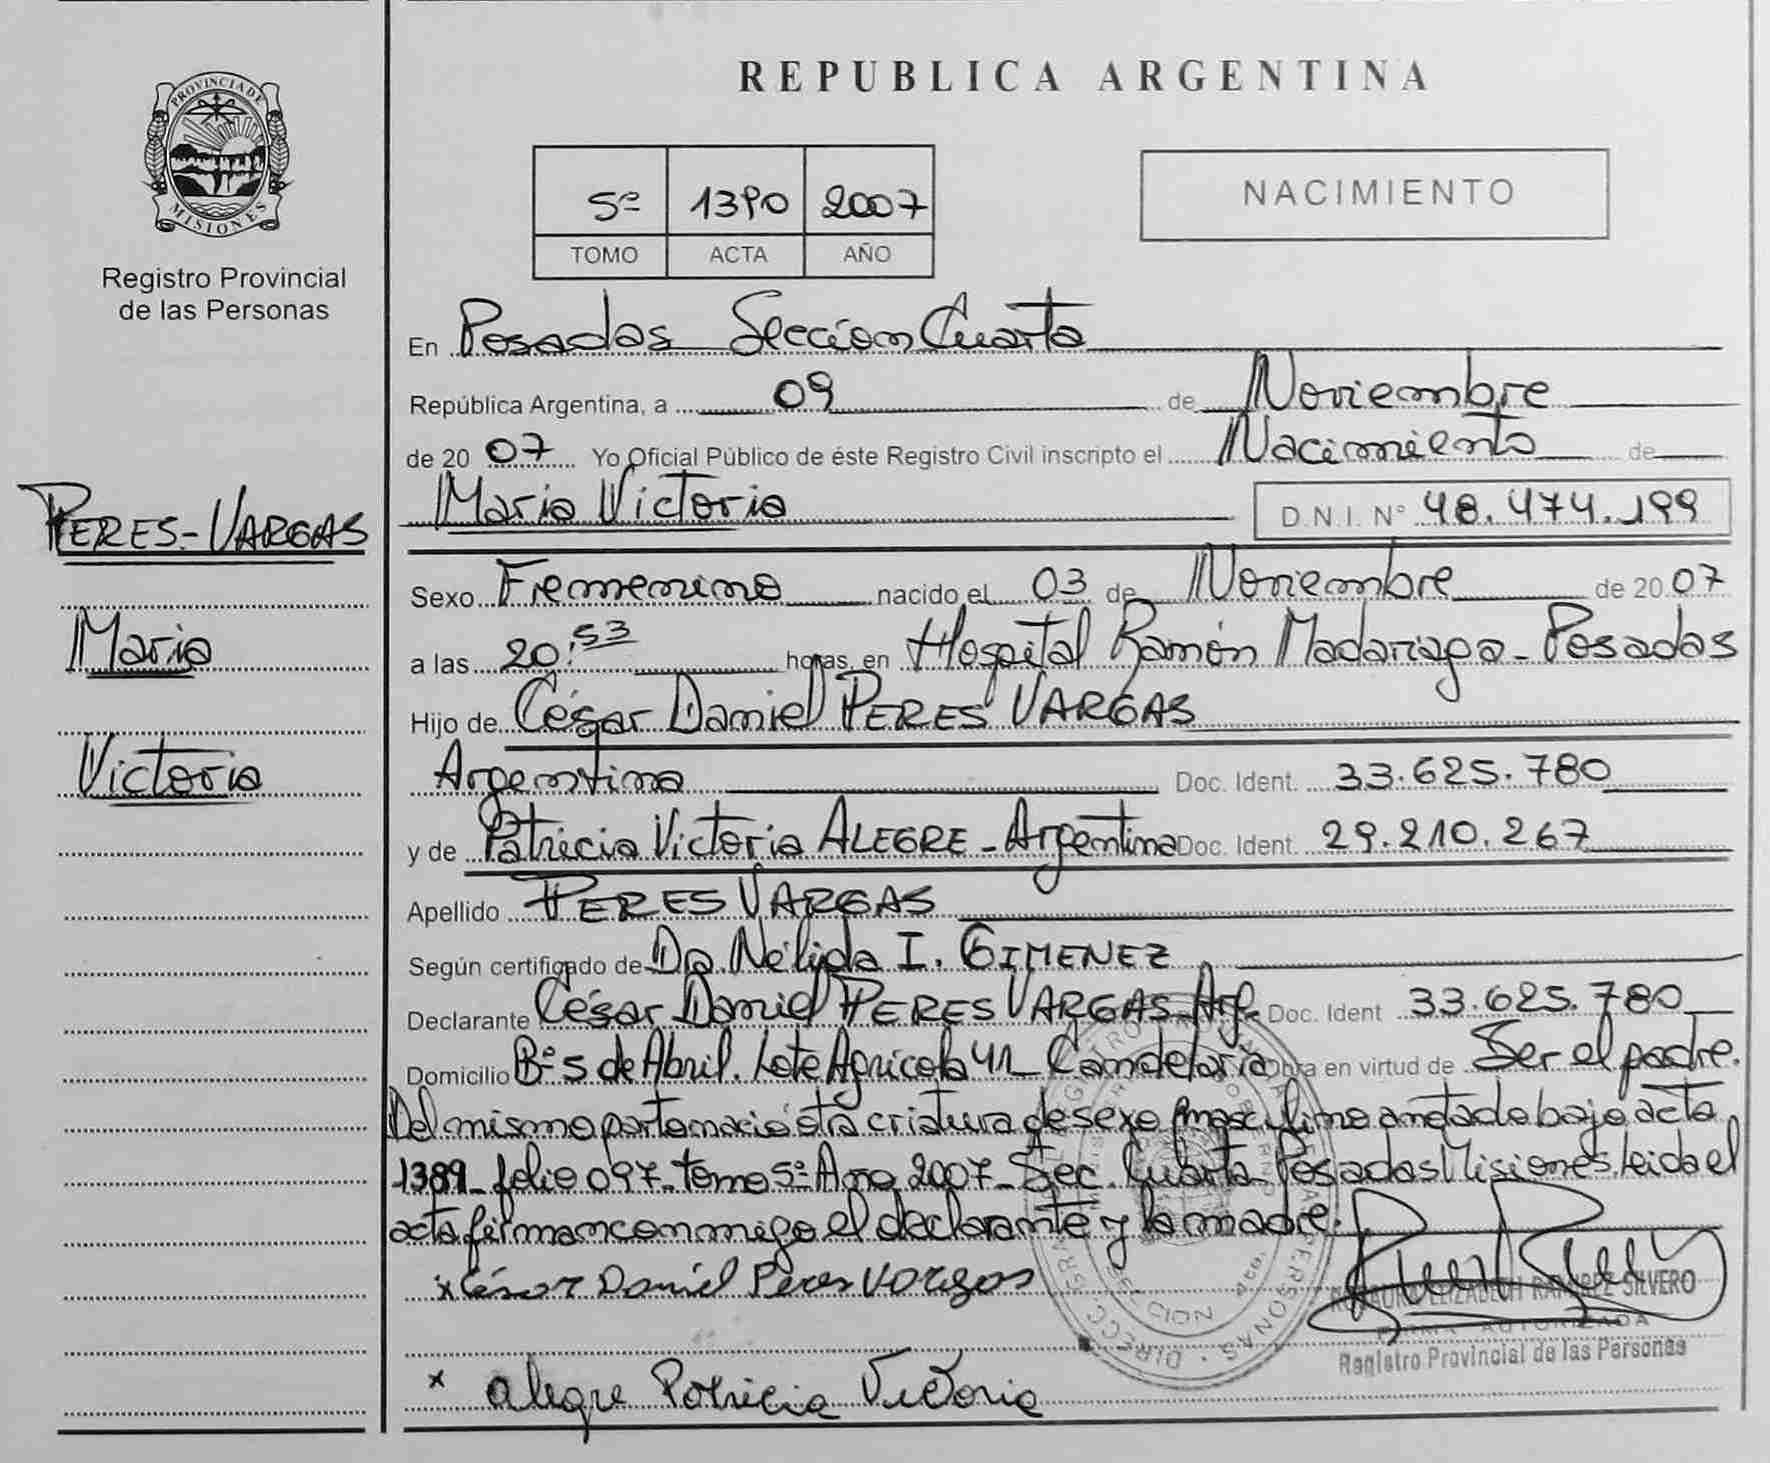 PROVINCIA DE
MISIONES
Registro Provincial
de las Personas
PERES-VARGAS
Maria
Victoria
REPUBLICA ARGENTINA
5º 1390 2007
TOMO ACTA AÑO
NACIMIENTO
En Posadas Sección Cuarta
República Argentina, a 09 de Noviembre
de 2007 Yo Oficial Público de éste Registro Civil inscripto el Nacimiento de
Maria Victoria D.N.I. Nº 48.474.199
Sexo Femenino nacido el 03 de Noviembre de 2007
a las 20:53 horas, en Hospital Ramón Madariaga - Posadas
Hijo de César Daniel PERES VARGAS
Argentina Doc. Ident. 33.625.780
y de Patricia Victoria ALEGRE - Argentina Doc. Ident. 29.210.267
Apellido PERES VARGAS
Según certificado de Dra. Nélida I. GIMENEZ
Declarante César Daniel PERES VARGAS Arg. Doc. Ident 33.625.780
Domicilio Bº 5 de Abril. Lote Agricola 41 Candelaria Obra en virtud de Ser el padre.
Del mismo parto nació otra criatura de sexo masculino anotado bajo acta
1389 - folio 097 - tomo 5º Año 2007 - Sec. Cuarta Posadas Misiones. Leida el
acta firman conmigo el declarante y la madre.
x César Daniel Peres Vargas
ELIZABETH RAMIREZ SILVERO
FIRMA AUTORIZADA
Registro Provincial de las Personas
x Alegre Patricia Victoria